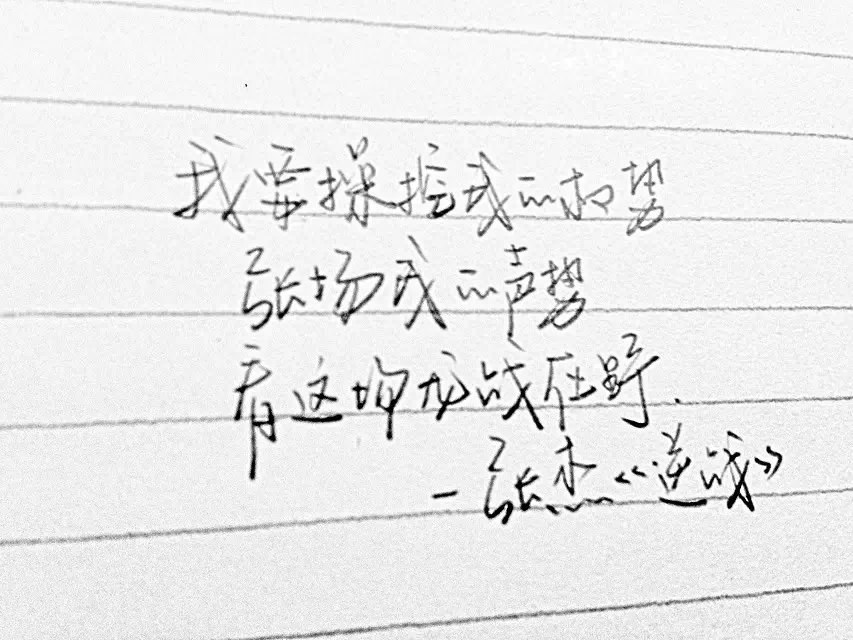 我要操控我的权势
张扬我的声势
看这场龙战在野.
— 张杰《逆战》